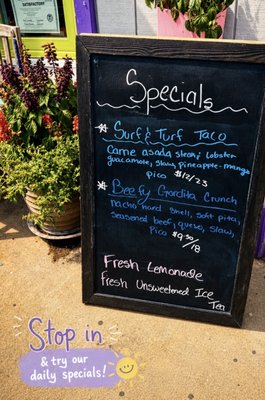 SATISFACTORY
Specials
Surf & Turf Taco
Carne asada steak & lobster
guacamole, slaw, pineapple-mango
pico $12/23
Beefy Gordita Crunch
nacho hard shell, soft pita,
seasoned beef, queso, slaw,
pico $9.50/18
Fresh Lemonade
Fresh Unsweetened Ice
Tea
Stop in
& try our
daily specials!